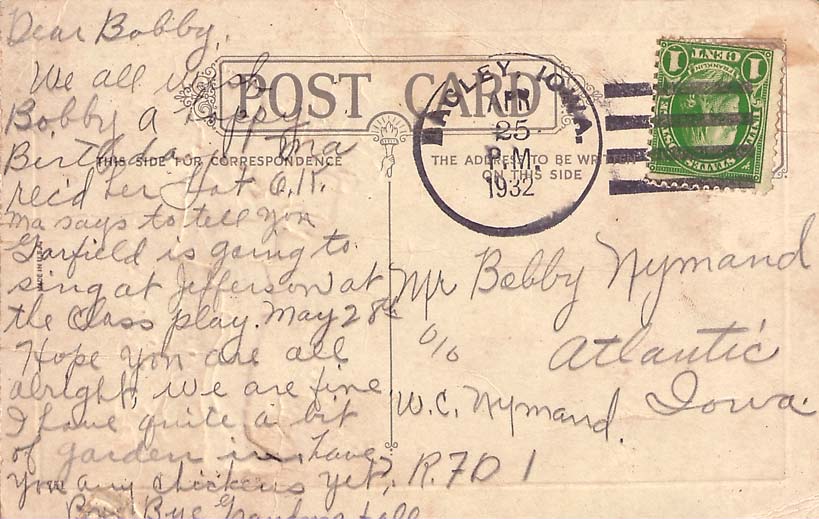 Dear Bobby,
We all wish
Bobby a Happy
Birthday. Ma
rec'd her Hat O.K.
Ma says to tell you
Garfield is going to
sing at Jefferson at
the Class play. May 28th
Hope you are all
alright, we are fine
I have quite a bit
of garden in, have
you any chickens yet,
Bye Bye Grandma & all
POST CARD
THIS SIDE FOR CORRESPONDENCE
THE ADDRESS TO BE WRITTEN
ON THIS SIDE
MADE IN U.S.A.
BAGLEY, IOWA.
APR
25
P.M.
1932
1 CENT 1
FRANKLIN
UNITED STATES POSTAGE
Mr Bobby Nymand
c/o Atlantic
W.C. Nymand. Iowa.
R.F.D 1